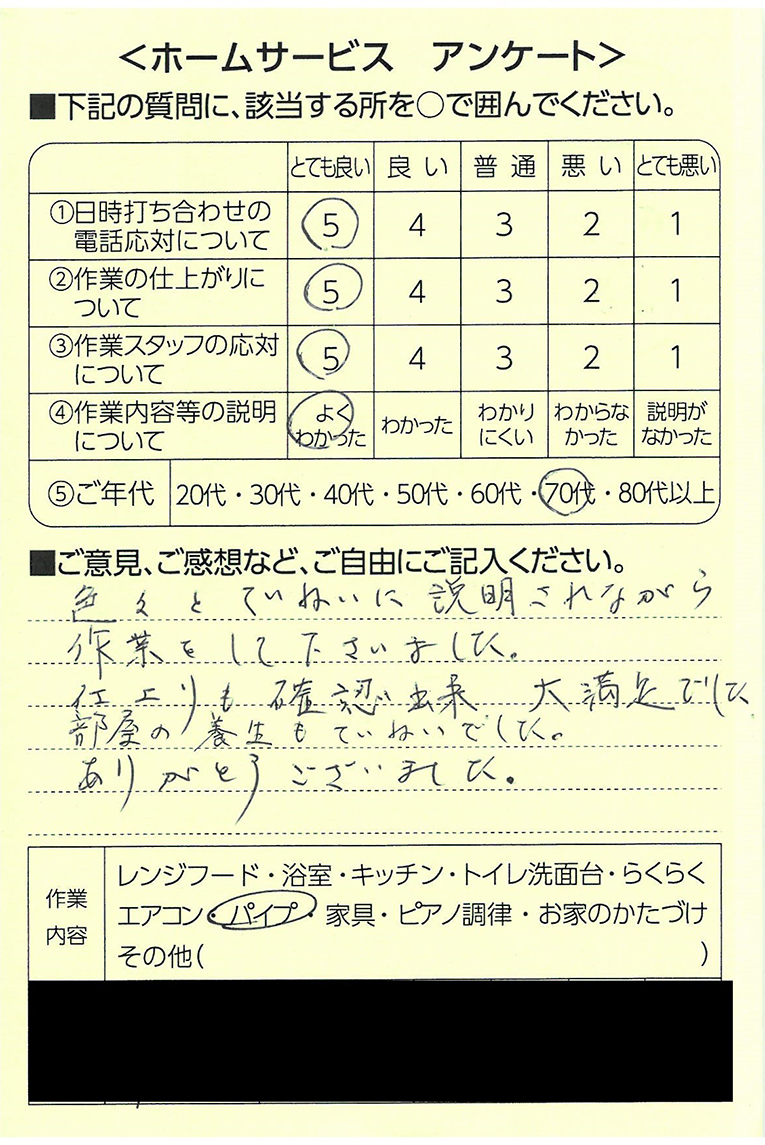 <ホームサービス　アンケート>
■下記の質問に、該当する所を○で囲んでください。
とても良い 良い 普通 悪い とても悪い
①日時打ち合わせの
電話応対について
5 4 3 2 1
②作業の仕上がりに
ついて
5 4 3 2 1
③作業スタッフの応対
について
5 4 3 2 1
④作業内容等の説明
について
よく
わかった
わかった
わかり
にくい
わからな
かった
説明が
なかった
⑤ご年代 20代・30代・40代・50代・60代・70代・80代以上
■ご意見、ご感想など、ご自由にご記入ください。
色々とていねいに説明されながら
作業をして下さいました。
仕上りも確認出来 大満足でした
部屋の養生もていねいでした。
ありがとうございました。
作業
内容
レンジフード・浴室・キッチン・トイレ洗面台・らくらく
エアコン・パイプ・家具・ピアノ調律・お家のかたづけ
その他(　)